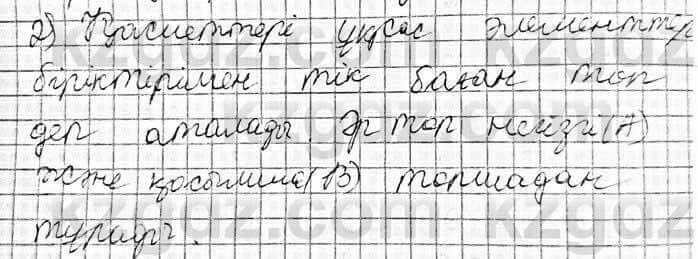 2) Қасиеттері ұқсас элементтер
біріктірілген тік баған топ
деп аталады. Әр топ негізгі (А)
және қосымша (В) топшадан
тұрады.
kzgdz.com kzgdz